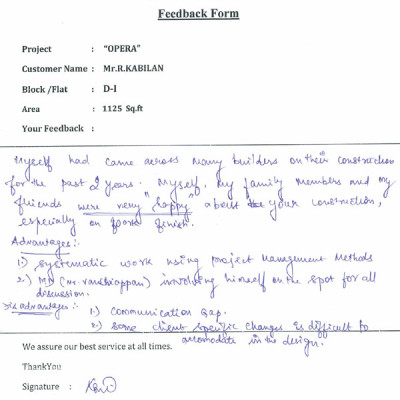 Feedback Form
Project : "OPERA"
Customer Name : Mr.R.KABILAN
Block /Flat : D-I
Area : 1125 Sq.ft
Your Feedback :
Myself had came across many builders on their construction
for the past 2 years. Myself, my family members and my
friends were very "happy" about the your construction,
especially on finish.
Advantages:-
1.) systematic work using project management methods
2.) MD (Mr. ) involving himself on the spot for all
discussion.
Disadvantages:-
1.) Communication Gap.
2.) Some client specific changes is difficult to
accomodate in the design.
We assure our best service at all times.
ThankYou
Signature :